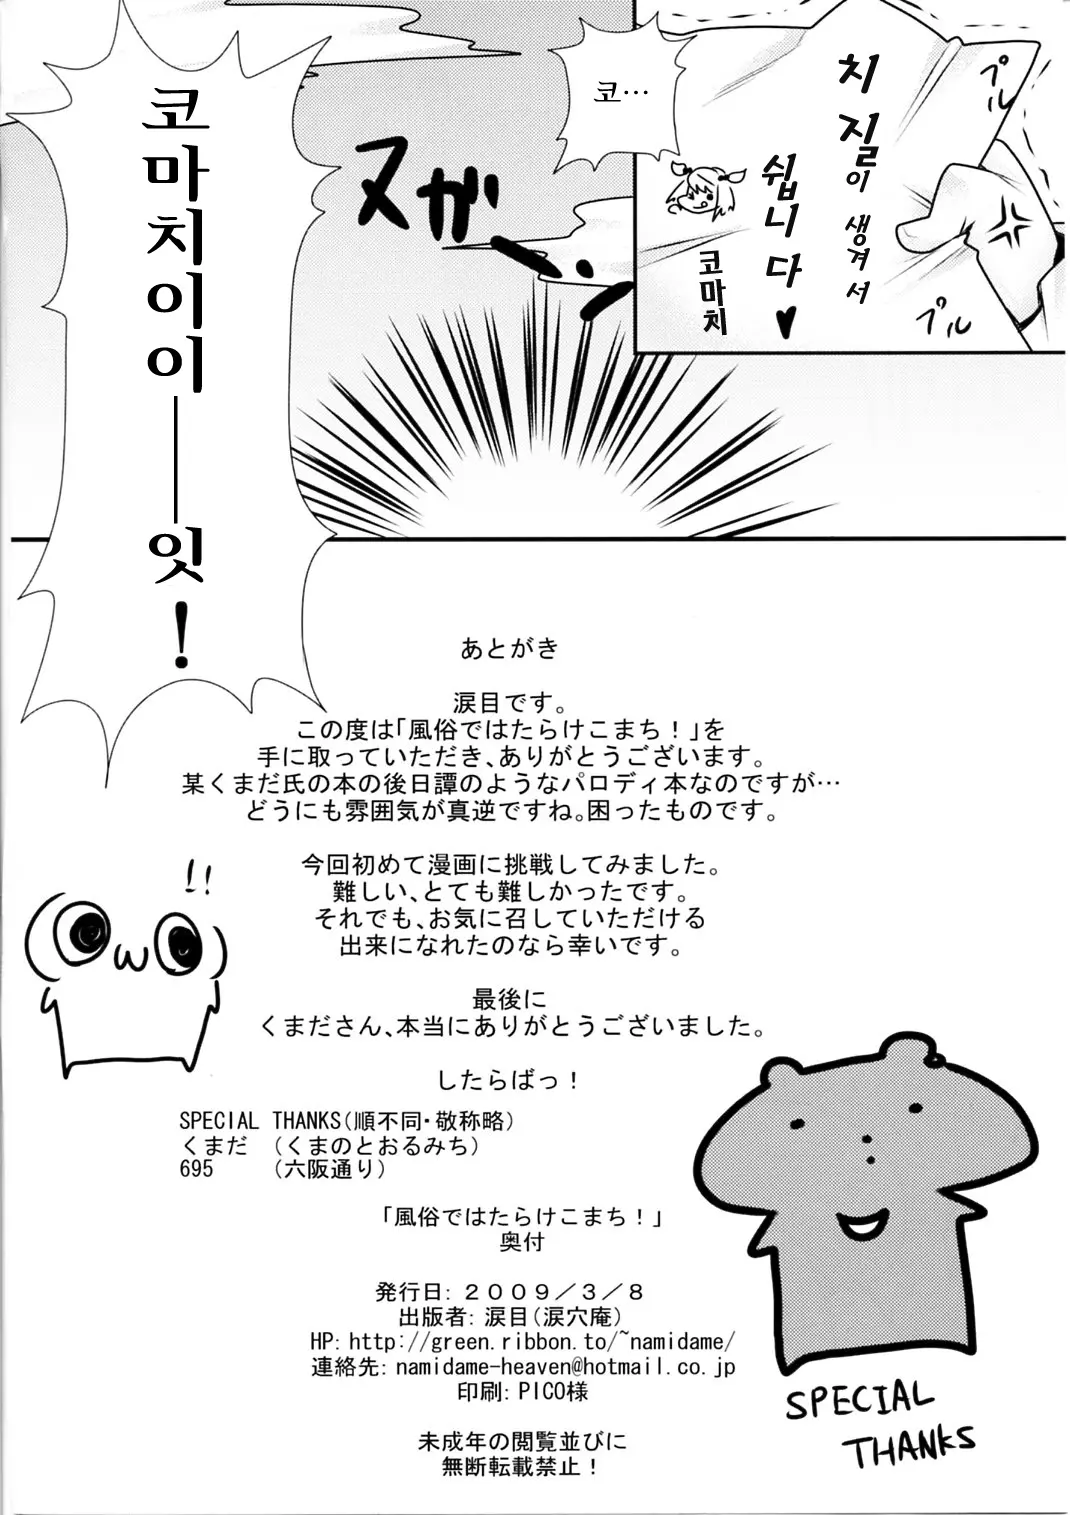 치질이 생겨서
쉽니다♥
코마치
プル
プル
코…
ヌガーッ
코마치이이——잇!
あとがき
涙目です。
この度は「風俗ではたらけこまち！」を
手に取っていただき、ありがとうございます。
某くまだ氏の本の後日譚のようなパロディ本なのですが…
どうにも雰囲気が真逆ですね。困ったものです。
今回初めて漫画に挑戦してみました。
難しい、とても難しかったです。
それでも、お気に召していただける
出来になれたのなら幸いです。
最後に
くまださん、本当にありがとうございました。
したらばっ！
!!
SPECIAL THANKS(順不同・敬称略)
くまだ (くまのとおるみち)
695 (六阪通り)
「風俗ではたらけこまち！」
奥付
発行日: ２００９／３／８
出版者: 涙目(涙穴庵)
HP: http://green.ribbon.to/~namidame/
連絡先: namidame-heaven@hotmail.co.jp
印刷: PICO様
未成年の閲覧並びに
無断転載禁止！
SPECIAL
THANKS